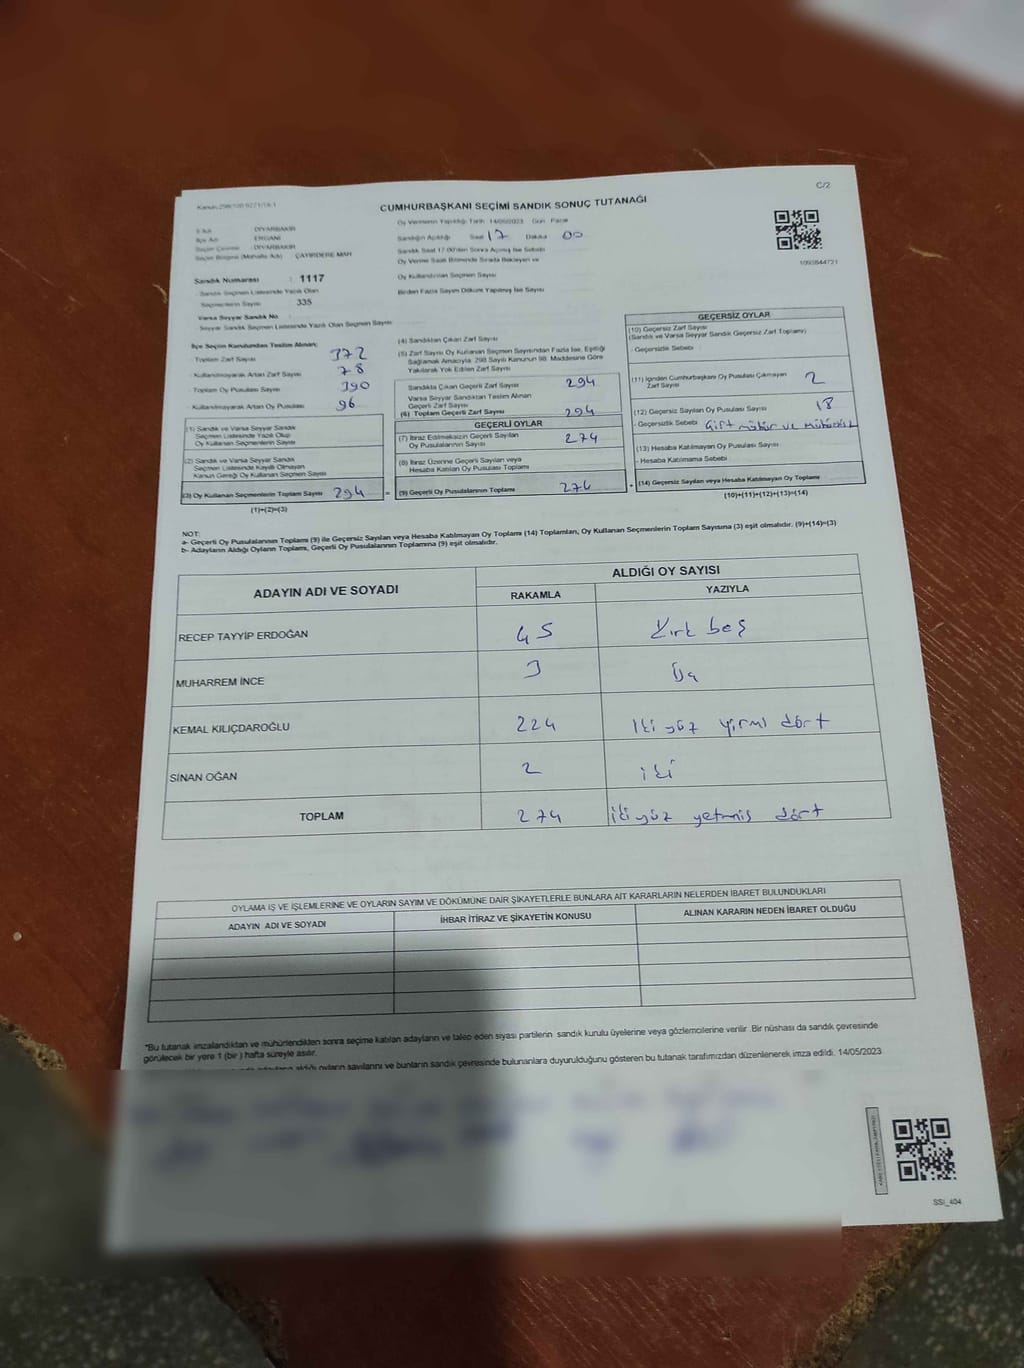 C/2
CUMHURBAŞKANI SEÇİMİ SANDIK SONUÇ TUTANAĞI
DİYARBAKIR
ERGANİ
DİYARBAKIR
Seçim Bölgesi (Mahalle Adı) : ÇAYIRDERE MAH
Sandık Numarası : 1117
Sandık Seçmen Listesinde Yazılı Olan
Seçmenlerin Sayısı : 335
Varsa Seyyar Sandık No
Seyyar Sandık Seçmen Listesinde Yazılı Olan Seçmen Sayısı
Oy Vermenin Yapıldığı Tarih 14/05/2023 Gün Pazar
Sandığın Açıldığı Saat 17 Dakika 00
Sandık Saat 17.00'den Sonra Açılmış İse Sebebi
Oy Verme Saati Bitiminde Sırada Bekleyen ve
Oy Kullandırılan Seçmen Sayısı
Birden Fazla Sayım Döküm Yapılmış İse Sayısı
1093844721
İlçe Seçim Kurulundan Teslim Alınan;
Toplam Zarf Sayısı 372
Kullanılmayarak Artan Zarf Sayısı 78
Toplam Oy Pusulası Sayısı 390
Kullanılmayarak Artan Oy Pusulası 96
(1) Sandık ve Varsa Seyyar Sandık
Seçmen Listesinde Yazılı Olup
Oy Kullanan Seçmenlerin Sayısı
(2) Sandık ve Varsa Seyyar Sandık
Seçmen Listesinde Kayıtlı Olmayan
Kanun Gereği Oy Kullanan Seçmen Sayısı
(3) Oy Kullanan Seçmenlerin Toplam Sayısı 294
(1)+(2)=(3)
(4) Sandıktan Çıkan Zarf Sayısı
(5) Zarf Sayısı Oy Kullanan Seçmen Sayısından Fazla İse, Eşitliği
Sağlamak Amacıyla 298 Sayılı Kanunun 98. Maddesine Göre
Yakılarak Yok Edilen Zarf Sayısı
Sandıkta Çıkan Geçerli Zarf Sayısı 294
Varsa Seyyar Sandıktan Teslim Alınan
Geçerli Zarf Sayısı
(6) Toplam Geçerli Zarf Sayısı 294
GEÇERLİ OYLAR
(7) İtiraz Edilmeksizin Geçerli Sayılan
Oy Pusulalarının Sayısı 274
(8) İtiraz Üzerine Geçerli Sayılan veya
Hesaba Katılan Oy Pusulası Toplamı
= (9) Geçerli Oy Pusulalarının Toplamı 274
GEÇERSİZ OYLAR
(10) Geçersiz Zarf Sayısı
(Sandık ve Varsa Seyyar Sandık Geçersiz Zarf Toplamı)
- Geçersizlik Sebebi :
(11) İçinden Cumhurbaşkanı Oy Pusulası Çıkmayan
Zarf Sayısı 2
(12) Geçersiz Sayılan Oy Pusulası Sayısı 18
- Geçersizlik Sebebi Çift mühür ve mühürsüz
(13) Hesaba Katılmayan Oy Pusulası Sayısı
- Hesaba Katılmama Sebebi
+ (14) Geçersiz Sayılan veya Hesaba Katılmayan Oy Toplamı
(10)+(11)+(12)+(13)=(14)
NOT:
a- Geçerli Oy Pusulalarının Toplamı (9) ile Geçersiz Sayılan veya Hesaba Katılmayan Oy Toplamı (14) Toplamları, Oy Kullanan Seçmenlerin Toplam Sayısına (3) eşit olmalıdır. (9)+(14)=(3)
b- Adayların Aldığı Oyların Toplamı, Geçerli Oy Pusulalarının Toplamına (9) eşit olmalıdır.
ADAYIN ADI VE SOYADI
ALDIĞI OY SAYISI
RAKAMLA YAZIYLA
RECEP TAYYİP ERDOĞAN 45 Kırk beş
MUHARREM İNCE 3 Üç
KEMAL KILIÇDAROĞLU 224 İki yüz yirmi dört
SİNAN OĞAN 2 iki
TOPLAM 274 iki yüz yetmiş dört
OYLAMA İŞ VE İŞLEMLERİNE VE OYLARIN SAYIM VE DÖKÜMÜNE DAİR ŞİKAYETLERLE BUNLARA AİT KARARLARIN NELERDEN İBARET BULUNDUKLARI
ADAYIN ADI VE SOYADI İHBAR İTİRAZ VE ŞİKAYETİN KONUSU ALINAN KARARIN NEDEN İBARET OLDUĞU
"Bu tutanak imzalandıktan ve mühürlendikten sonra seçime katılan adayların ve talep eden siyasi partilerin sandık kurulu üyelerine veya gözlemcilerine verilir. Bir nüshası da sandık çevresinde
görülecek bir yere 1 (bir ) hafta süreyle asılır.
aldığı oyların sayılarını ve bunların sandık çevresinde bulunanlara duyurulduğunu gösteren bu tutanak tarafımızdan düzenlenerek imza edildi. 14/05/2023
SSI_404